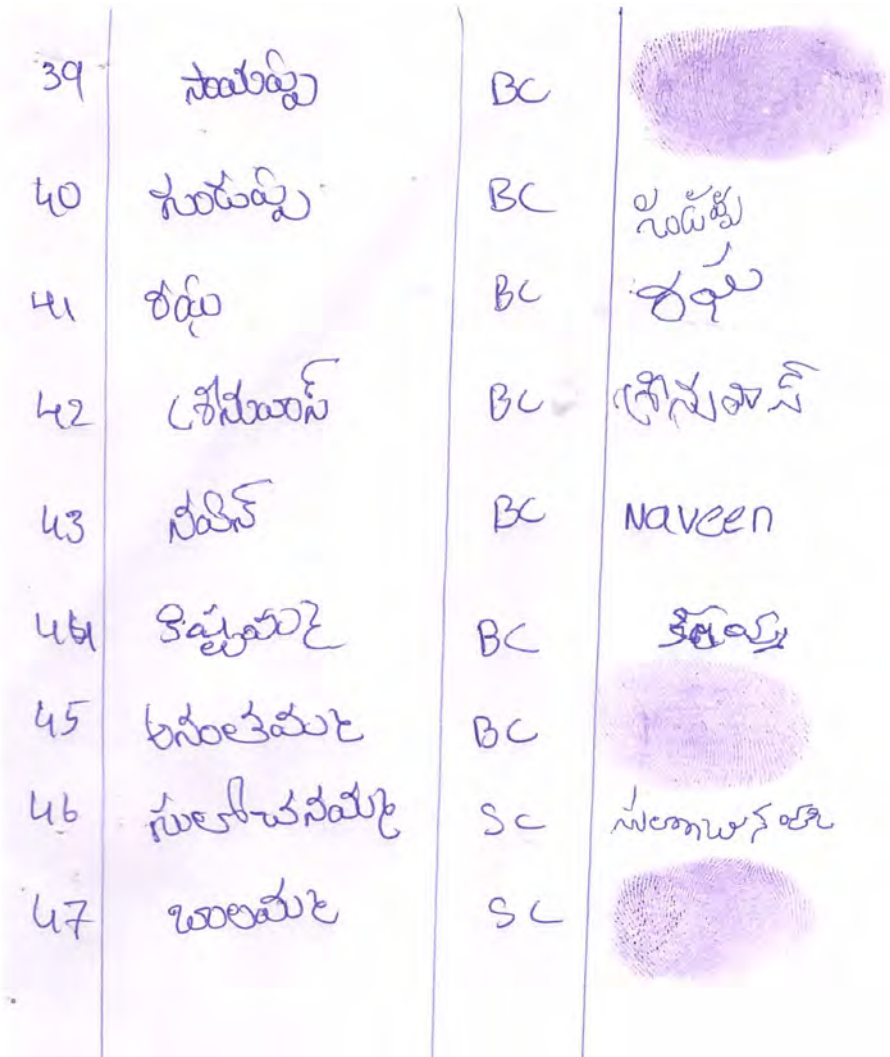 39 సాయప్ప BC
40 గుండప్ప BC గుండప్ప
41 రఘు BC రఘు
42 శ్రీనువాస్ BC శ్రీనువాస్
43 నవీన్ BC Naveen
44 కిష్టమ్మ BC
45 అనంతమ్మ BC
46 సులోచనమ్మ SC
47 బాలమ్మ SC